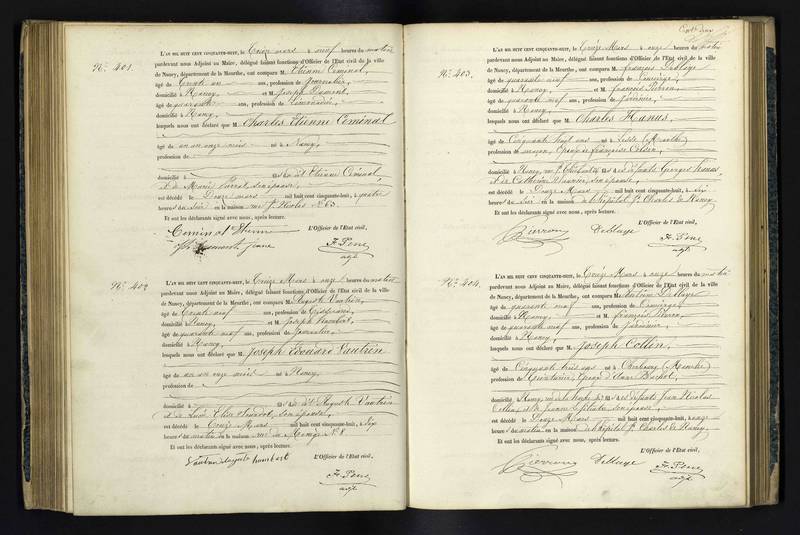 N.º 401.
L'AN MIL HUIT CENT CINQUANTE-HUIT, le treize mars à neuf heures du matin
pardevant nous Adjoint au Maire, délégué faisant fonctions d'Officier de l'Etat civil de la ville
de Nancy, département de la Meurthe, ont comparu M. Etienne Ceminal,
âgé de trente un ans, profession de journalier,
domicilié à Nancy, et M. Joseph Dumont,
âgé de quarante ans, profession de
domicilié à Nancy,
lesquels nous ont déclaré que M. Charles Etienne Ceminal
âgé de un an onze mois né à Nancy,
profession de
domicilié à fils dudit Etienne Ceminal,
et de Marie son épouse,
est décédé le Douze mars mil huit cent cinquante-huit, à quatre
heures du soir en la maison rue St Nicolas N.º 63.
Et ont les déclarants signé avec nous, après lecture.
L'Officier de l'Etat civil,
Ceminal Etienne
A. Pene
adjt
N.º 402
L'AN MIL HUIT CENT CINQUANTE-HUIT, le Treize Mars à onze heures du matin
pardevant nous Adjoint au Maire, délégué faisant fonctions d'Officier de l'Etat civil de la ville
de Nancy, département de la Meurthe, ont comparu M. Auguste Vautrin,
âgé de trente neuf ans, profession de
domicilié à Nancy, et M. Joseph Humbert,
âgé de quarante neuf ans, profession de journalier,
domicilié à Nancy,
lesquels nous ont déclaré que M. Joseph Edouard Vautrin
âgé de un an onze mois né à Nancy,
profession de
domicilié à fils dudit Auguste Vautrin
et de son épouse,
est décédé le Treize Mars mil huit cent cinquante-huit, à six
heures du matin en la maison rue du Manège N.º 8
Et ont les déclarants signé avec nous, après lecture.
L'Officier de l'Etat civil,
Vautrin auguste humbert
A. Pene
adjt
N.º 403.
L'AN MIL HUIT CENT CINQUANTE-HUIT, le Treize Mars à onze heures du matin
pardevant nous Adjoint au Maire, délégué faisant fonctions d'Officier de l'Etat civil de la ville
de Nancy, département de la Meurthe, ont comparu M. Deblaye
âgé de quarante neuf ans, profession de
domicilié à Nancy, et M. François Pierron,
âgé de quarante neuf ans, profession de jardinier,
domicilié à Nancy,
lesquels nous ont déclaré que M. Charles Hanus,
âgé de Cinquante huit ans né à (Meurthe)
profession de maçon, époux de Françoise
domicilié à Nancy, fils des défunts Georges Hanus
et de Catherine son épouse,
est décédé le Douze Mars mil huit cent cinquante-huit, à six
heures du soir en la maison de l'hôpital St Charles de Nancy.
Et ont les déclarants signé avec nous, après lecture.
L'Officier de l'Etat civil,
Pierron Deblaye
A. Pene
adjt
N.º 404.
L'AN MIL HUIT CENT CINQUANTE-HUIT, le Treize Mars à onze heures du matin
pardevant nous Adjoint au Maire, délégué faisant fonctions d'Officier de l'Etat civil de la ville
de Nancy, département de la Meurthe, ont comparu M. Deblaye
âgé de quarante neuf ans, profession de
domicilié à Nancy, et M. François Pierron
âgé de quarante neuf ans, profession de jardinier,
domicilié à Nancy,
lesquels nous ont déclaré que M. Joseph Collin,
âgé de Cinquante trois ans né à (Meurthe)
profession de époux d'Anne
domicilié à Nancy, fils des défunts Jean Nicolas
Collin et de Jeanne son épouse,
est décédé le Douze Mars mil huit cent cinquante-huit, à onze
heures du matin en la maison de l'hôpital St Charles de Nancy.
Et ont les déclarants signé avec nous, après lecture.
L'Officier de l'Etat civil,
Pierron Deblaye
A. Pene
adjt